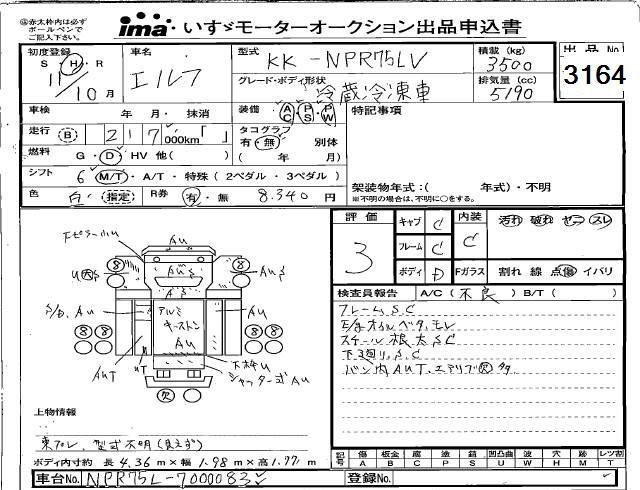 ㊟赤太枠内は必ずボールペンでご記入下さい。
ima いすゞモーターオークション出品申込書
初度登録 S・H・R 11/10月
車名 エルフ
型式 KK-NPR75LV
積載(kg) 3500
出品No 3164
グレード・ボディ形状 冷蔵冷凍車
排気量(cc) 5190
車検 年 月・抹消
装備 AC・PS・PW
特記事項
走行 B 217,000km「 」
タコグラフ 有・無 別体 ( 年 月)
燃料 G・D・HV 他( )
シフト 6 M/T・A/T・特殊(2ペダル・3ペダル)
架装物年式:( 年式)・不明
※不明の場合は、不明に○をする。
色 白 (指定)
R券 有・無 8.340円
評価 3
キャブ C
フレーム C
ボディ D
内装 C 汚れ 破れ ヤニ スレ
Fガラス 割れ 線 点傷 イバリ
検査員報告 A/C(不良)B/T( )
フレームS,C
E/gオイルベタ、モレ
スチール根太SC
下廻りS,C
バン内AUT、エアリブ欠タ
AU
AUS
AS
S/D, AU
AU
アルミ
キーストン
AU
AUT
UT
シャッター式AU
欠
上物情報
東プレ、型式不明(見えず)
ボディ内寸約 長4.36m×幅1.98m×高1.77m
記号 傷A 板金B 腐C 塗P 錆S 凹凸曲U 波W 穴H 跡M レツ割T
車台No. NPR75L-7000083
登録No.